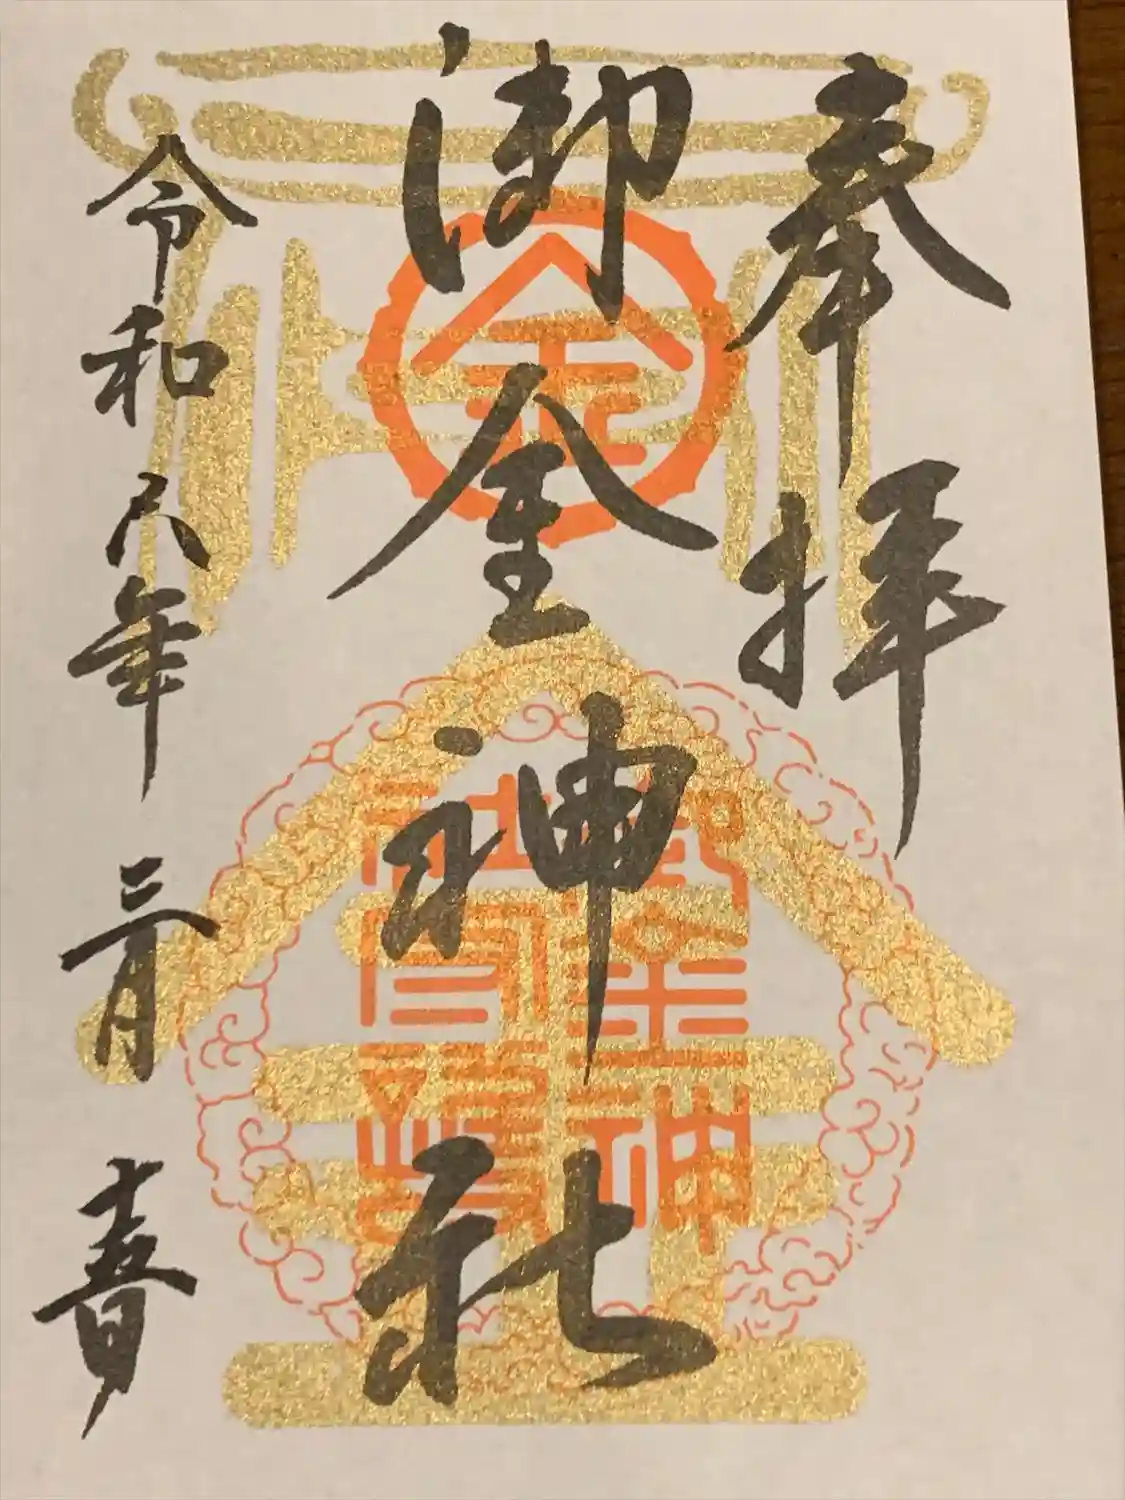 奉拝
御金神社
令和 年 三月 十五日
金
御金神